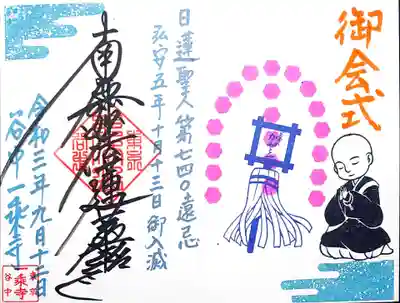 御会式
日蓮聖人第七四〇遠忌
弘安五年十月十三日御入滅
南無妙法蓮華経
谷中一乗寺
東京
一乗寺
谷中